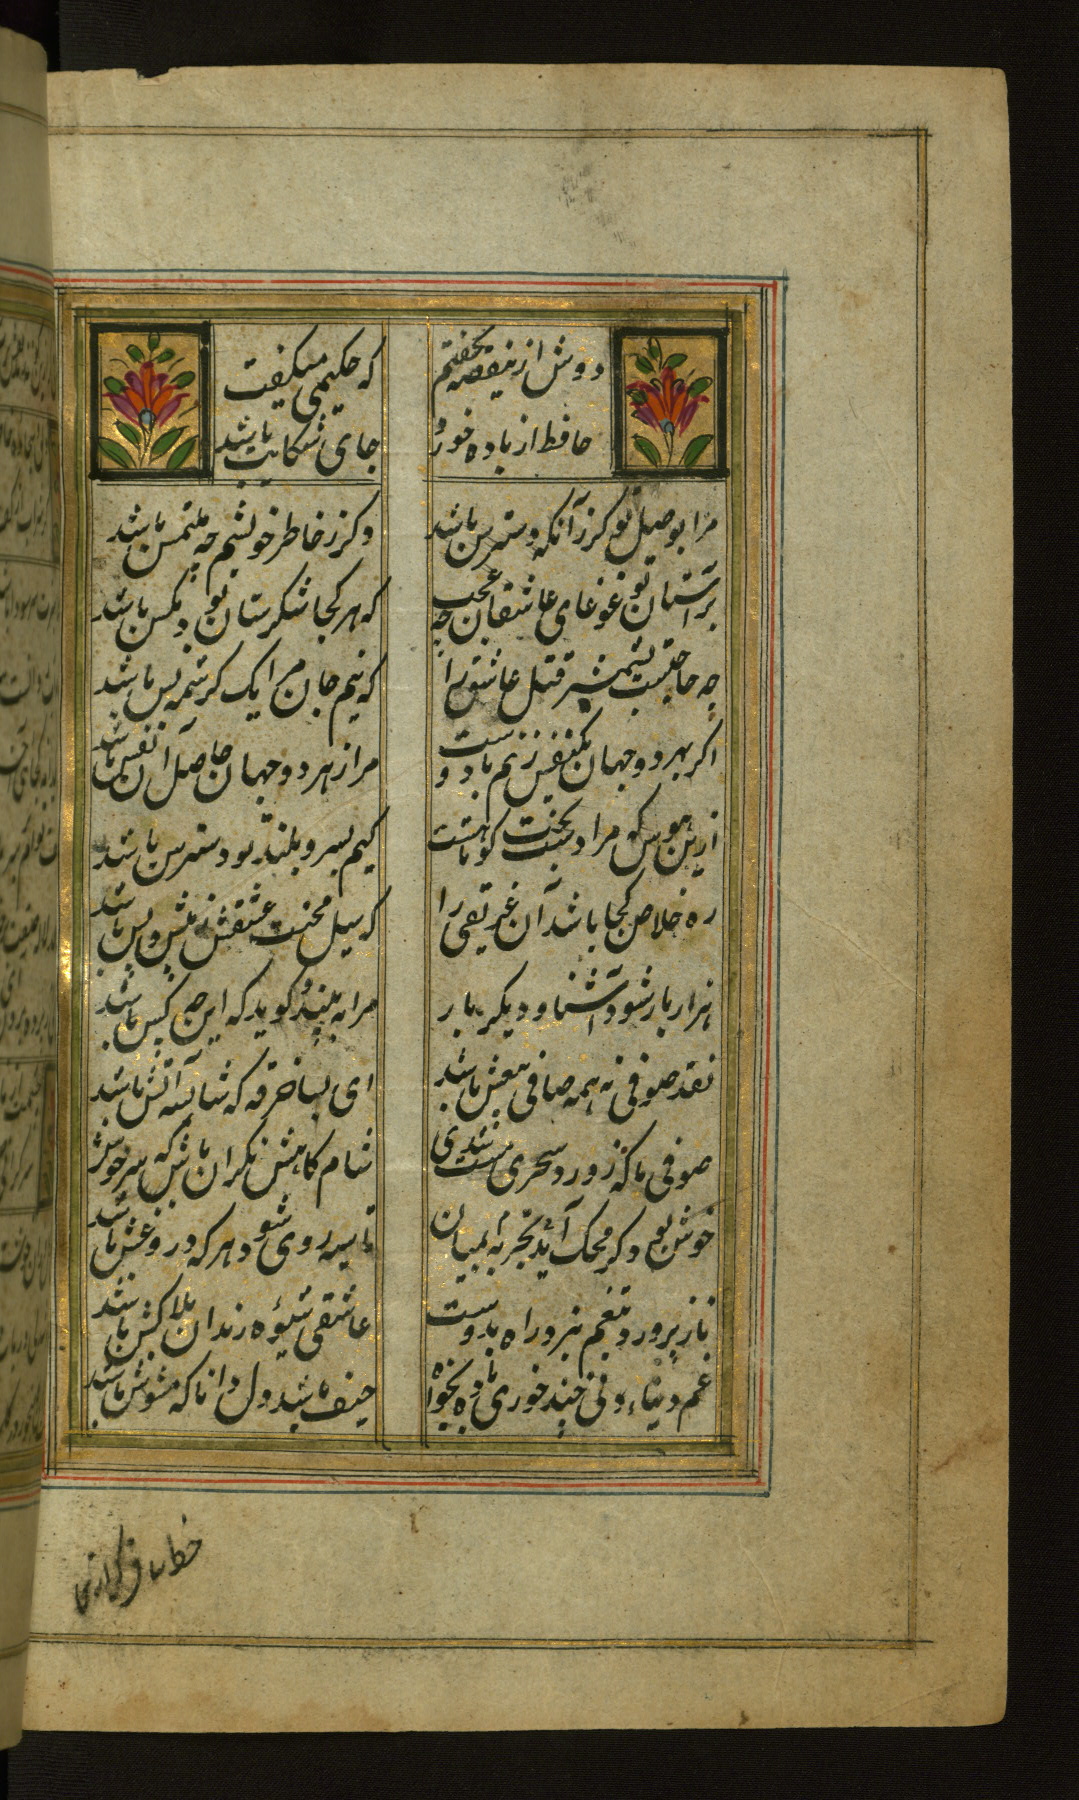 دوش ازین قصه نخفتم که حکیمی میگفت
حافظ از باده خورد جای شکایت باشد
مرا بوصل تو کرزآنکه دسترس باشد دکرز خاطر خویشم چه ملتمس باشد
برآستان تو غوغای عاشقان چه عجب که هر کجا شکرستان بود مکس باشد
چه حاجتست بشمشیر قتل عاشق را که نیم جان مرا یک کرشمه بس باشد
اکر بهر دو جهان یکنفس زنم با دوست مرا ز هر دو جهان حاصل آن نفس باشد
ازین هوس که مرا دست بخت کوتاهست کیم بسرو بلند تو دسترس باشد
ره خلاص کجا باشد آن غریقی را که سیل محنت عشقش ز پیش و پس باشد
هزار بار شود آشنا و دیکر بار مرا به بیند و کوید که این چه کس باشد
نقد صوفی نه همه صافی بیغش باشد ای بسا خرقه که شایسته آتش باشد
صوفی ما که ز ورد سحری مست شدی شام کاهش نکران باش که سرخوش باشد
خوش بود کر محک آید تجربه بمیان تا سیه روی شود هر که دروغش باشد
ناز پرورد تنعم نبرد راه بدوست عاشقی شیوه رندان بلاکش باشد
غم دنیاء دنی چند خوری باده بخواه حیف باشد دل دانا که مشوش باشد